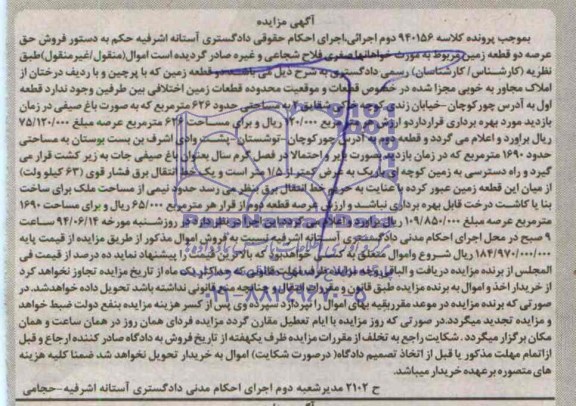 آگهی مزایده
بموجب پرونده کلاسه ۹۴۰۱۵۶ دوم اجرائی،اجرای احکام حقوقی دادگستری آستانه اشرفیه حکم به دستور فروش حق
عرصه دو قطعه زمین مربوط به مورث خواهانها صفری فلاح شجاعی و غیره صادر گردیده است اموال(منقول/غیرمنقول)طبق
نظریه (کارشناس/ کارشناسان) رسمی دادگستری به شرح ذیل می باشد دو قطعه زمین که با پرچین و با ردیف درختان از
املاک مجاور به خوبی مجزا شده در خصوص قطعات و موقعیت محدوده قطعات زمین اختلافی بین طرفین وجود ندارد قطعه
اول به آدرس چورکوچان -خیابان زندی کوچه خاکی شقایق به مساحتی حدود ۶۲۶ مترمربع که به صورت باغ صیفی در زمان
بازدید مورد بهره برداری قرارداردو ارزش هر مترمربع ۱۲۰/۰۰۰ ریال و برای مساحت ۶۲۶ مترمربع عرصه مبلغ ۷۵/۱۲۰/۰۰۰
ریال براورد و اعلام می گردد و قطعه دوم به آدرس چورکوچان-توشستان-پشت وادی اشرف بن بست بوستان به مساحتی
حدود ۱۶۹۰ مترمربع که در زمان بازدید بصورت بایر و احتمالا در فصل گرم سال بعنوان باغ صیفی جات به زیر کشت قرار می
گیرد و راه دسترسی به زمین کوچه ای باریک به عرض کمتر از ۱/۵ متر است و یک خط انتقال برق فشار قوی (۶۳ کیلو ولت)
از میان این قطعه زمین عبور کرده با عنایت به حریم خط انتقال برق بنظر می رسد حدود نیمی از مساحت ملک برای ساخت
بنا یا کاشت درخت قابل بهره برداری نباشد و ارزش عرصه قطعه دوم از قرار هر مترمربع ۶۵/۰۰۰ ریال و برای مساحت ۱۶۹۰
مترمربع عرصه مبلغ ۱۰۹/۸۵۰/۰۰۰ ریال براورد و اعلام می گردد این اجرا در نظر دارد در روزشنبه مورخه ۹۴/۰۶/۱۴ ساعت
۹ صبح در محل اجرای احکام مدنی دادگستری آستانه اشرفیه نسبت به فروش اموال مذکور از طریق مزایده از قیمت پایه
۱۸۴/۹۷۰/۰۰۰/۰۰۰ ریال شروع واموال متعلق به کسی خواهدبود که بالاترین قیمت را پیشنهاد نماید ده درصد از قیمت فی
المجلس از برنده مزایده دریافت و الباقی وجه مزایده ظرف مهلت قانونی که حداکثر یک ماه از تاریخ مزایده تجاوز نخواهد کرد
از خریدار اخذ و اموال به برنده مزایده طبق قانون و مقررات انتقال و چنانچه منع قانونی نداشته باشد تحویل داده خواهدشد.در
صورتی که برنده مزایده در موعد مقرربقیه بهای اموال را نپردازد سپرده وی پس از کسر هزینه مزایده بنفع دولت ضبط خواهد
و مزایده تجدید میگردد.در صورتی که روز مزایده با ایام تعطیل مقارن گردد مزایده فردای همان روز در همان ساعت و همان
مکان برگزار میگردد . شکایت راجع به تخلف از مقررات مزایده ظرف یکهفته از تاریخ فروش به دادگاه صادر کننده ارجاع و قبل
ازاتمام مهلت مذکور یا قبل از اتخاذ تصمیم دادگاه( درصورت شکایت) اموال به خریدار تحویل نخواهد شد ضمنا کلیه هزینه
های متصوره برعهده خریدار میباشد.
ح ۲۱۰۲ مدیرشعبه دوم اجرای احکام مدنی دادگستری آستانه اشرفیه-حجامی
۰۲۱-۸۸۳۴۹۶۷۰-۵